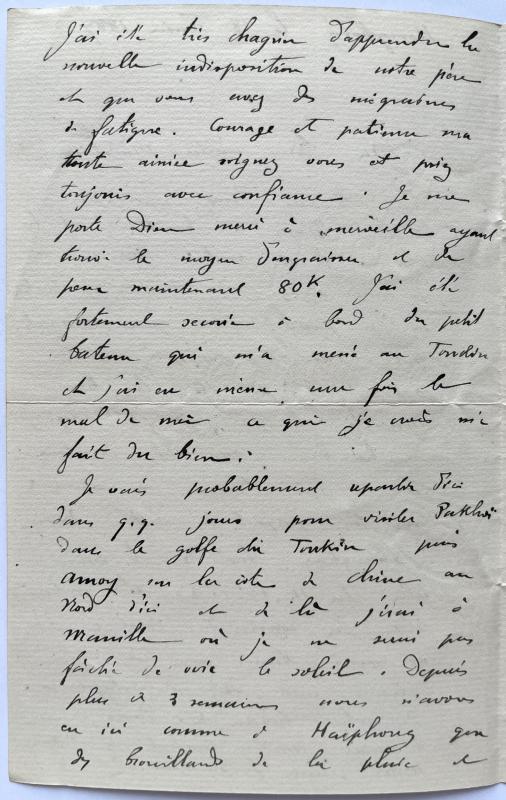 J'ai été très chagrin d'apprendre la
nouvelle indisposition de notre père
et que vous avez des migraines
de fatigue. Courage et patience ma
toute aimée soignez vous et priez
toujours avec confiance. Je me
porte Dieu merci à merveille ayant
trouvé le moyen d'engraisser et de
peser maintenant 80K. J'ai été
fortement secoué à bord du petit
bateau qui m'a mené au Tonkin
et j'ai eu même une fois le
mal de mer ce qui je crois m'a
fait du bien.
Je vais probablement repartir d'ici
dans q.q. jours pour visiter Pakhoï
dans le golfe du Tonkin puis
Amoy sur la côte de Chine au
Nord d'ici et de là j'irai à
Manille où je ne serai pas
fâché de voir le soleil. Depuis
plus de 3 semaines nous n'avons
eu ici comme à Haïphong que
des brouillards de la pluie et